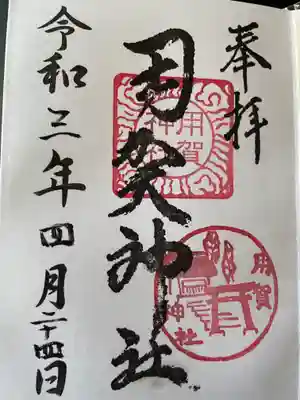 奉拝
用賀神社
用賀神社
用賀神社
令和三年四月二十四日